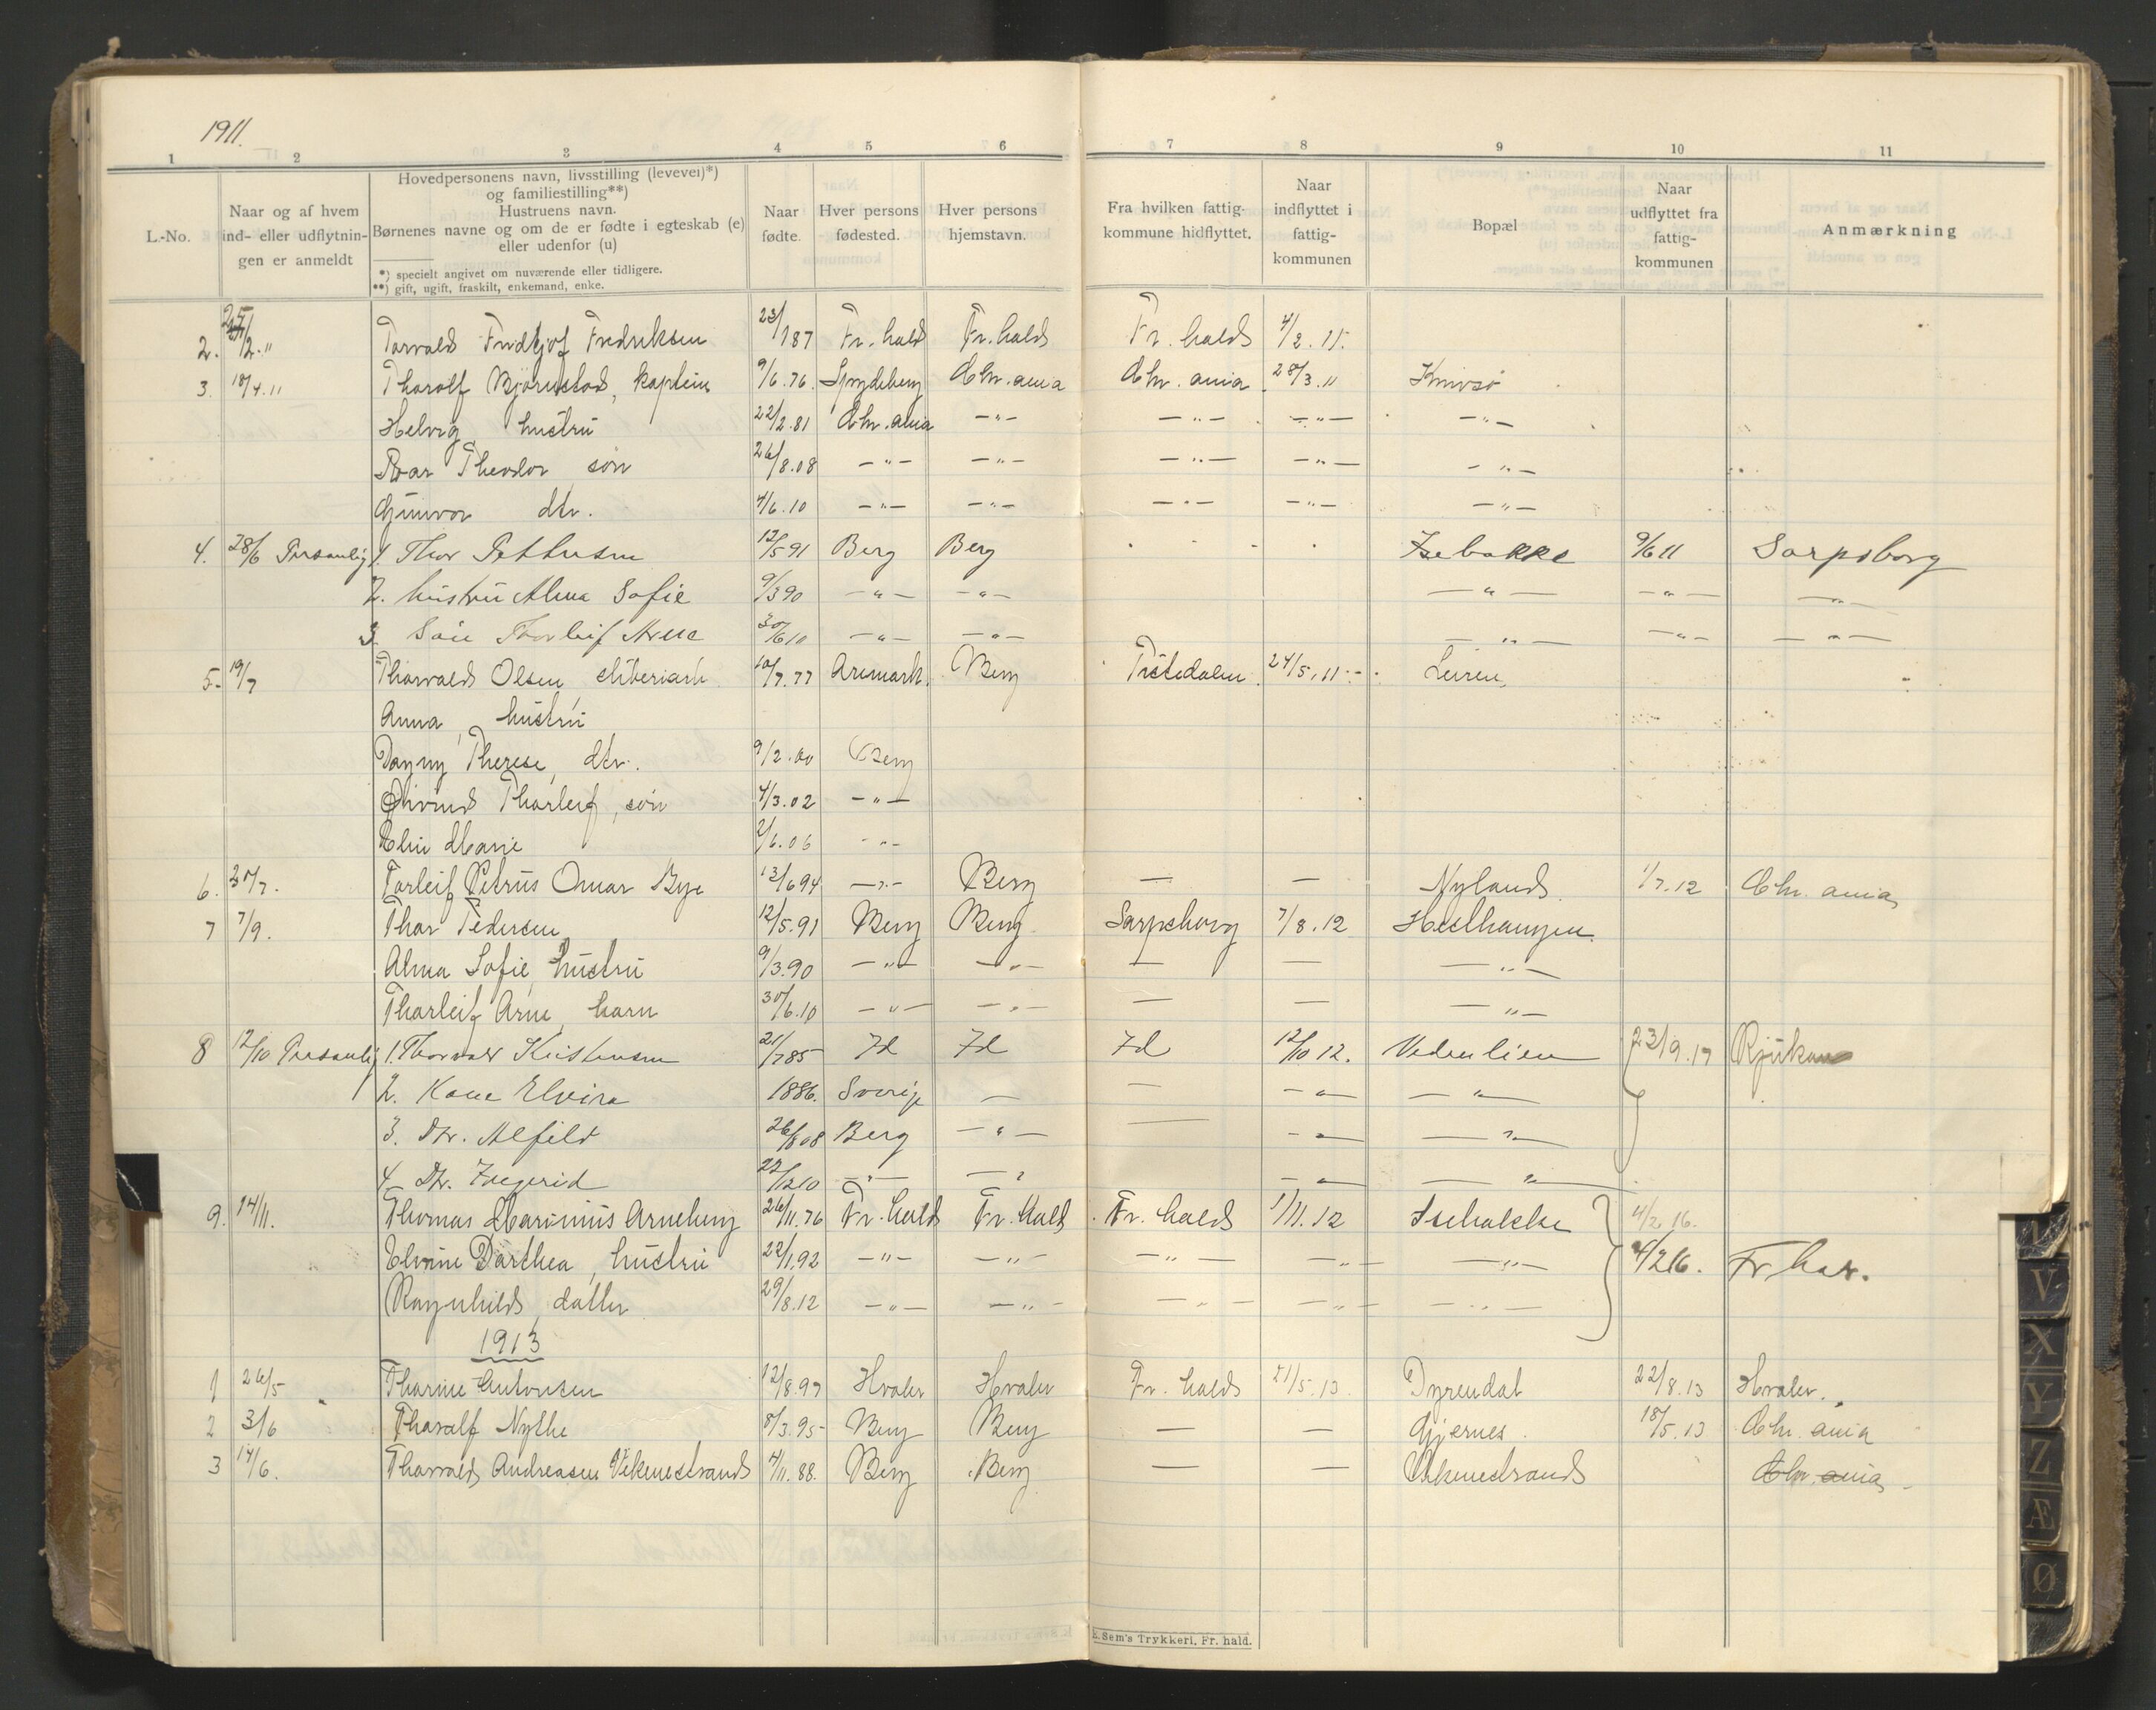 1911.
1 2 3 4 5 6 7 8 9 10 11
L.-No.
Naar og af hvem ind- eller udflytnin-gen er anmeldt
Hovedpersonens navn, livsstilling (levevei)*)
og familiestilling**)
Hustruens navn.
Børnenes navne og om de er fødte i egteskab (e)
eller udenfor (u)
*) specielt angivet om nuværende eller tidligere.
**) gift, ugift, fraskilt, enkemand, enke.
Naar fødte.
Hver persons fødested.
Hver persons hjemstavn.
Fra hvilken fattig-kommune hidflyttet.
Naar indflyttet i fattig-kommunen
Bopæl
Naar udflyttet fra fattig-kommunen
Anmærkning
2. /2. " Torvald Fridtjof Fredriksen 23/1 87 Fr.hald Fr.hald Fr.hald 4/2.11.
3. 18/4.11 Tharalf Bjørnstad, kaptein 9/6.76. Spydeberg Chr.ania Chr.ania 28/3.11 Knivsø
Helvig hustru 22/2.81 Chr.ania -"- -"- -"- -"-
Roar Theodor søn 26/8.08 -"- -"- -"- -"- -"-
Gunvor dtr. 4/6.10 -"- -"- -"- -"- -"-
4. 28/6 Personlig 1. Thor Pettersen 12/5 91 Berg Berg Isebakke 9/6 11 Sarpsborg
2. hustru Alma Sofie 9/3 90 -"- -"- -"- -"- -"-
3. Søn Thorleif Arne 30/6 10 -"- -"- -"- -"- -"-
5. 19/7 Thorvald Olsen 10/7.77 Aremark Berg Tistedalen 24/5.11 Leiren
Anna, hustru
Dagny Therese, dtr. 9/2.00 Berg
Øivind Thorleif, søn 4/3.02 -"-
Elin Marie 2/6.06 -"-
6. 30/7. Torleif Petrus Omar Bye 13/6 94 -"- Berg — — Nyland 1/7.12 Chr.ania
7 7/9. Thor Pedersen 12/5.91 Berg Berg Sarpsborg 7/8.12 Heslhaugen
Alma Sofie, hustru 9/3.90 -"- -"- — — -"-
Thorleif Arne, barn 30/6.10 -"- -"- — — -"-
8 12/10 Personlig 1. Thorvald Kristensen 21/7 85 Id Id Id 12/10 12. Vedenlien 23/9.17 Rjukan
2. Kone Elvira 1886. Sverige — — -"- -"-
3. Dtr. Alfild 26/8 08 Berg -"- — -"- -"-
4 Dtr. Ingerid 22/12 10 -"- -"- -"- -"-
9. 14/11. Thomas Marinius Arneberg 26/11.76 Fr.hald Fr.hald Fr.hald 1/11.12 Isebakke 4/2 16.
Elvine Dorthea, hustru 22/1.92 -"- -"- -"- -"- -"- 4/2 16. Fr hald.
Ragnhild, datter 29/8.12 -"- -"- -"- -"- -"-
1913
1 26/5 Thorine Antonsen 12/8.97 Hvaler Hvaler Fr.hald 21/5.13 Dyrendal 22/8.13 Hvaler.
2 3/6 Tharalf Nythe 8/3.95 Berg Berg — — Gjernes. 18/5.13 Chr.ania
3 14/6. Thorvald Andreasen Vikenestrand 4/11.88. Berg Berg — — Vikenestrand Chr.ania
E. Sem's Trykkeri, Fr. hald.
V
X
Y
Z
Æ
Ø